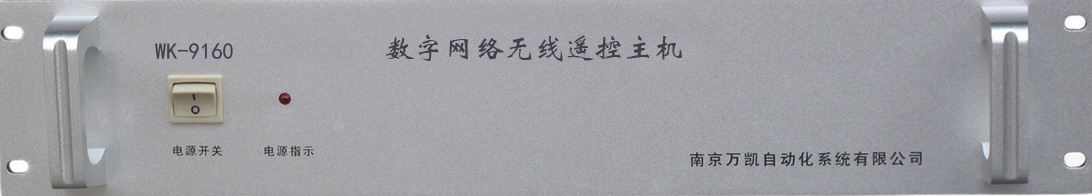 WK-9160
数字网络无线遥控主机
电源开关
电源指示
南京万凯自动化系统有限公司